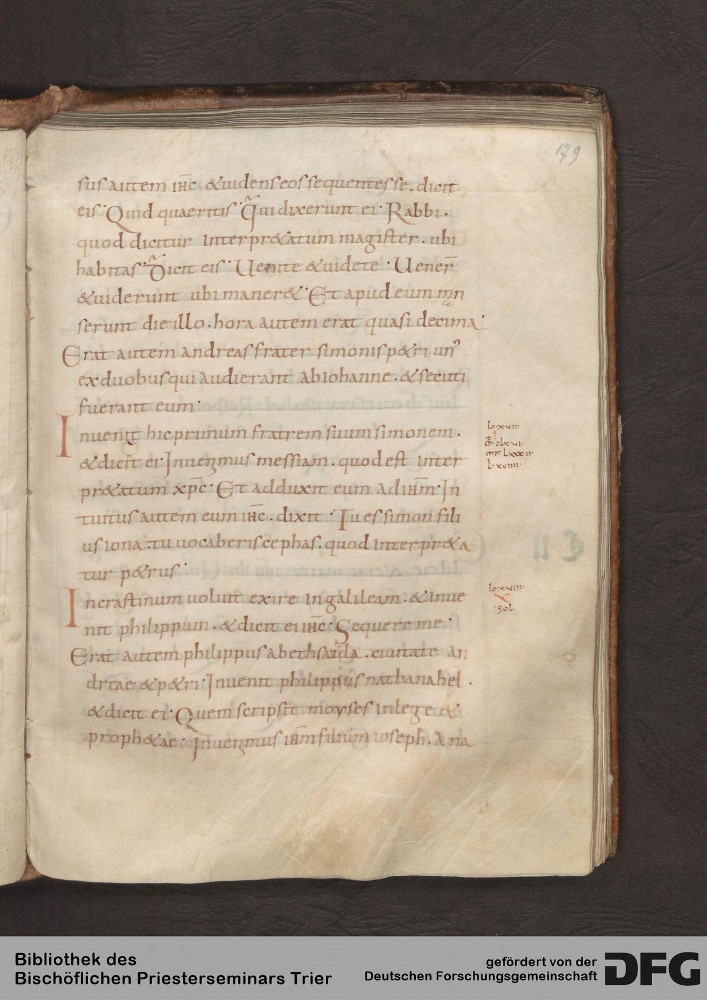 179
sus autem ihc &uidens eos sequentes se. dicit
eis. Quid quaeritis. Qui dixerunt ei. Rabbi.
quod dicitur interpr&atum magister. ubi
habitas. Dicit eis. Uenite &uidete. Uener
&uiderunt ubi maner&. Et apud eum man
serunt die illo. hora autem erat quasi decima.
Erat autem andreas frater simonis p&ri un'
ex duobus qui audierant ab iohanne. & secuti
fuerant eum.
Inuenit hic primum fratrem suum simonem.
& dicit ei. Inuenimus messiam. quod est inter
pr&atum xpc. Et adduxit eum ad ihm. In
tuitus autem eum ihc. dixit. Tu es simon fili
us iona. tu uocaberis cephas. quod interpr&a
tur p&rus.
In crastinum uoluit exire in galileam. & inue
nit philippum. & dicit ei ihc. Sequere me.
Erat autem philippus abethsaida. ciuitate an
dreae & p&ri. Inuenit philippus nathanahel.
& dicit ei. Quem scripsit moyses in lege &
proph&ae. Inuenimus ihm filium ioseph. a na
sol
Bibliothek des
Bischöflichen Priesterseminars Trier
gefördert von der
Deutschen Forschungsgemeinschaft
DFG